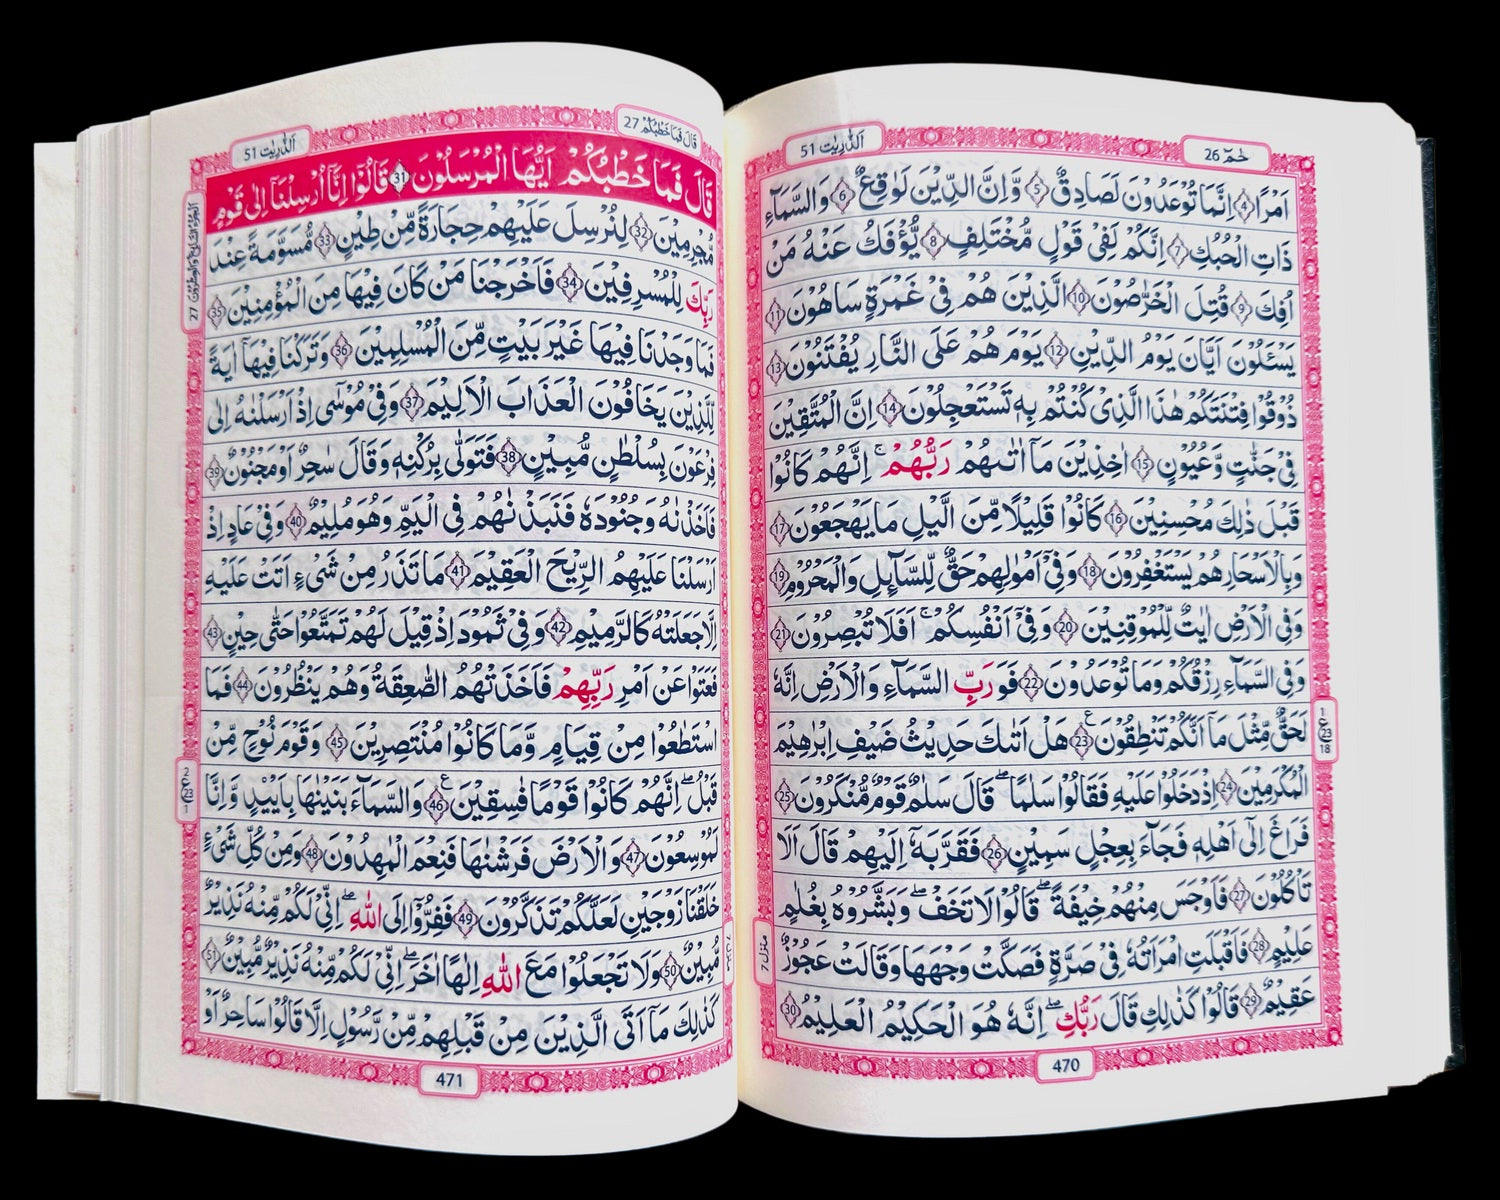 حٰمٓ 26
اَلذّٰرِيٰت 51
اَمْرًا ﴿4﴾ اِنَّمَا تُوْعَدُوْنَ لَصَادِقٌ ﴿5﴾ وَّاِنَّ الدِّيْنَ لَوَاقِعٌ ﴿6﴾ وَالسَّمَآءِ
ذَاتِ الْحُبُكِ ﴿7﴾ اِنَّكُمْ لَفِيْ قَوْلٍ مُّخْتَلِفٍ ﴿8﴾ يُّؤْفَكُ عَنْهُ مَنْ
اُفِكَ ﴿9﴾ قُتِلَ الْخَرّٰصُوْنَ ﴿10﴾ الَّذِيْنَ هُمْ فِيْ غَمْرَةٍ سَاهُوْنَ ﴿11﴾
يَسْـَٔلُوْنَ اَيَّانَ يَوْمُ الدِّيْنِ ﴿12﴾ يَوْمَ هُمْ عَلَى النَّارِ يُفْتَنُوْنَ ﴿13﴾
ذُوْقُوْا فِتْنَتَكُمْ هٰذَا الَّذِيْ كُنْتُمْ بِهٖ تَسْتَعْجِلُوْنَ ﴿14﴾ اِنَّ الْمُتَّقِيْنَ
فِيْ جَنّٰتٍ وَّعُيُوْنٍ ﴿15﴾ اٰخِذِيْنَ مَآ اٰتٰىهُمْ رَبُّهُمْ ۚ اِنَّهُمْ كَانُوْا
قَبْلَ ذٰلِكَ مُحْسِنِيْنَ ﴿16﴾ كَانُوْا قَلِيْلًا مِّنَ الَّيْلِ مَا يَهْجَعُوْنَ ﴿17﴾
وَبِالْاَسْحَارِ هُمْ يَسْتَغْفِرُوْنَ ﴿18﴾ وَفِيْٓ اَمْوَالِهِمْ حَقٌّ لِّلسَّآئِلِ وَالْمَحْرُوْمِ ﴿19﴾
وَفِي الْاَرْضِ اٰيٰتٌ لِّلْمُوْقِنِيْنَ ﴿20﴾ وَفِيْٓ اَنْفُسِكُمْ ۚ اَفَلَا تُبْصِرُوْنَ ﴿21﴾
وَفِي السَّمَآءِ رِزْقُكُمْ وَمَا تُوْعَدُوْنَ ﴿22﴾ فَوَرَبِّ السَّمَآءِ وَالْاَرْضِ اِنَّهٗ
لَحَقٌّ مِّثْلَ مَآ اَنَّكُمْ تَنْطِقُوْنَ ﴿23﴾ ع هَلْ اَتٰىكَ حَدِيْثُ ضَيْفِ اِبْرٰهِيْمَ
الْمُكْرَمِيْنَ ﴿24﴾ اِذْ دَخَلُوْا عَلَيْهِ فَقَالُوْا سَلٰمًا ۖ قَالَ سَلٰمٌ قَوْمٌ مُّنْكَرُوْنَ ﴿25﴾
فَرَاغَ اِلٰٓى اَهْلِهٖ فَجَآءَ بِعِجْلٍ سَمِيْنٍ ﴿26﴾ فَقَرَّبَهٗٓ اِلَيْهِمْ قَالَ اَلَا
تَاْكُلُوْنَ ﴿27﴾ فَاَوْجَسَ مِنْهُمْ خِيْفَةً ۖ قَالُوْا لَا تَخَفْ ۖ وَبَشَّرُوْهُ بِغُلٰمٍ
عَلِيْمٍ ﴿28﴾ فَاَقْبَلَتِ امْرَاَتُهٗ فِيْ صَرَّةٍ فَصَكَّتْ وَجْهَهَا وَقَالَتْ عَجُوْزٌ
عَقِيْمٌ ﴿29﴾ قَالُوْا كَذٰلِكِ قَالَ رَبُّكِ ۖ اِنَّهٗ هُوَ الْحَكِيْمُ الْعَلِيْمُ ﴿30﴾
1
ع
23
18
منزل 7
470
قَالَ فَمَا خَطْبُكُمْ 27
اَلذّٰرِيٰت 51
قَالَ فَمَا خَطْبُكُمْ اَيُّهَا الْمُرْسَلُوْنَ ﴿31﴾ قَالُوْٓا اِنَّآ اُرْسِلْنَآ اِلٰى قَوْمٍ
مُّجْرِمِيْنَ ﴿32﴾ لِنُرْسِلَ عَلَيْهِمْ حِجَارَةً مِّنْ طِيْنٍ ﴿33﴾ مُّسَوَّمَةً عِنْدَ
رَبِّكَ لِلْمُسْرِفِيْنَ ﴿34﴾ فَاَخْرَجْنَا مَنْ كَانَ فِيْهَا مِنَ الْمُؤْمِنِيْنَ ﴿35﴾
فَمَا وَجَدْنَا فِيْهَا غَيْرَ بَيْتٍ مِّنَ الْمُسْلِمِيْنَ ﴿36﴾ وَتَرَكْنَا فِيْهَآ اٰيَةً
لِّلَّذِيْنَ يَخَافُوْنَ الْعَذَابَ الْاَلِيْمَ ﴿37﴾ وَفِيْ مُوْسٰٓى اِذْ اَرْسَلْنٰهُ اِلٰى
فِرْعَوْنَ بِسُلْطٰنٍ مُّبِيْنٍ ﴿38﴾ فَتَوَلّٰى بِرُكْنِهٖ وَقَالَ سٰحِرٌ اَوْ مَجْنُوْنٌ ﴿39﴾
فَاَخَذْنٰهُ وَجُنُوْدَهٗ فَنَبَذْنٰهُمْ فِي الْيَمِّ وَهُوَ مُلِيْمٌ ﴿40﴾ وَفِيْ عَادٍ اِذْ
اَرْسَلْنَا عَلَيْهِمُ الرِّيْحَ الْعَقِيْمَ ﴿41﴾ مَا تَذَرُ مِنْ شَيْءٍ اَتَتْ عَلَيْهِ
اِلَّا جَعَلَتْهُ كَالرَّمِيْمِ ﴿42﴾ وَفِيْ ثَمُوْدَ اِذْ قِيْلَ لَهُمْ تَمَتَّعُوْا حَتّٰى حِيْنٍ ﴿43﴾
فَعَتَوْا عَنْ اَمْرِ رَبِّهِمْ فَاَخَذَتْهُمُ الصّٰعِقَةُ وَهُمْ يَنْظُرُوْنَ ﴿44﴾ فَمَا
اسْتَطٰعُوْا مِنْ قِيَامٍ وَّمَا كَانُوْا مُنْتَصِرِيْنَ ﴿45﴾ وَقَوْمَ نُوْحٍ مِّنْ
قَبْلُ ۖ اِنَّهُمْ كَانُوْا قَوْمًا فٰسِقِيْنَ ﴿46﴾ ع وَالسَّمَآءَ بَنَيْنٰهَا بِاَيْىدٍ وَّاِنَّا
لَمُوْسِعُوْنَ ﴿47﴾ وَالْاَرْضَ فَرَشْنٰهَا فَنِعْمَ الْمٰهِدُوْنَ ﴿48﴾ وَمِنْ كُلِّ شَيْءٍ
خَلَقْنَا زَوْجَيْنِ لَعَلَّكُمْ تَذَكَّرُوْنَ ﴿49﴾ فَفِرُّوْٓا اِلَى اللّٰهِ ۖ اِنِّيْ لَكُمْ مِّنْهُ نَذِيْرٌ
مُّبِيْنٌ ﴿50﴾ وَلَا تَجْعَلُوْا مَعَ اللّٰهِ اِلٰهًا اٰخَرَ ۖ اِنِّيْ لَكُمْ مِّنْهُ نَذِيْرٌ مُّبِيْنٌ ﴿51﴾
كَذٰلِكَ مَآ اَتَى الَّذِيْنَ مِنْ قَبْلِهِمْ مِّنْ رَّسُوْلٍ اِلَّا قَالُوْا سَاحِرٌ اَوْ
الجزء السابع والعشرون 27
2
ع
23
1
471